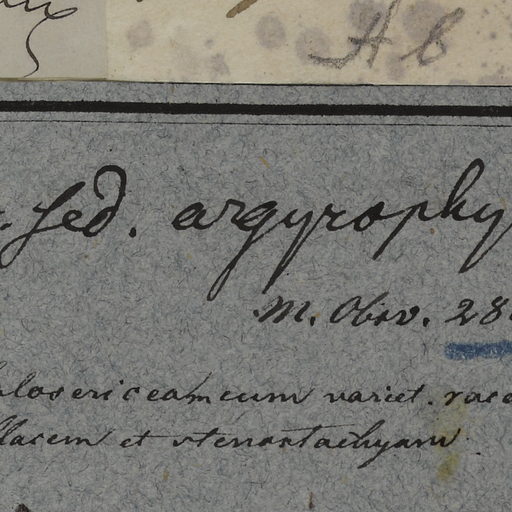 A b
fed. argyrophy
m. Obsv. 28
holosericeam cum variet. race
llacem et stenostachyam